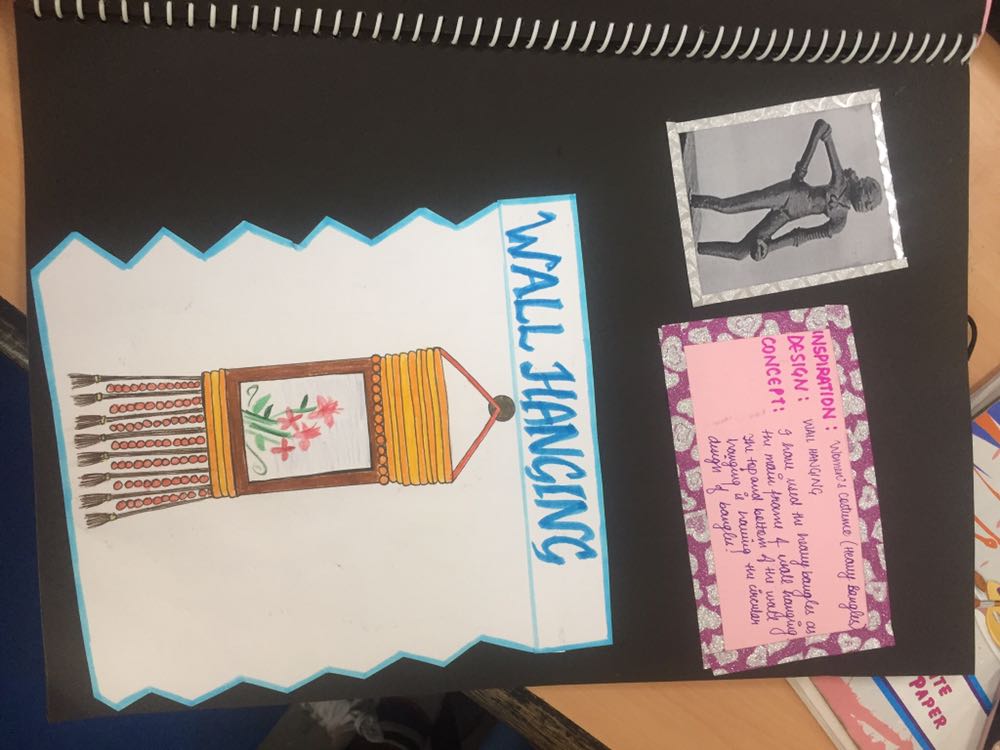 WALL HANGING
INSPIRATION : Women's costume (Heavy Bangles)
DESIGN : WALL HANGING
CONCEPT : I have used the heavy bangles as
the main frame of wall hanging
The top and bottom of the wall
hanging is having the circular
design of bangles!
TE
PAPER